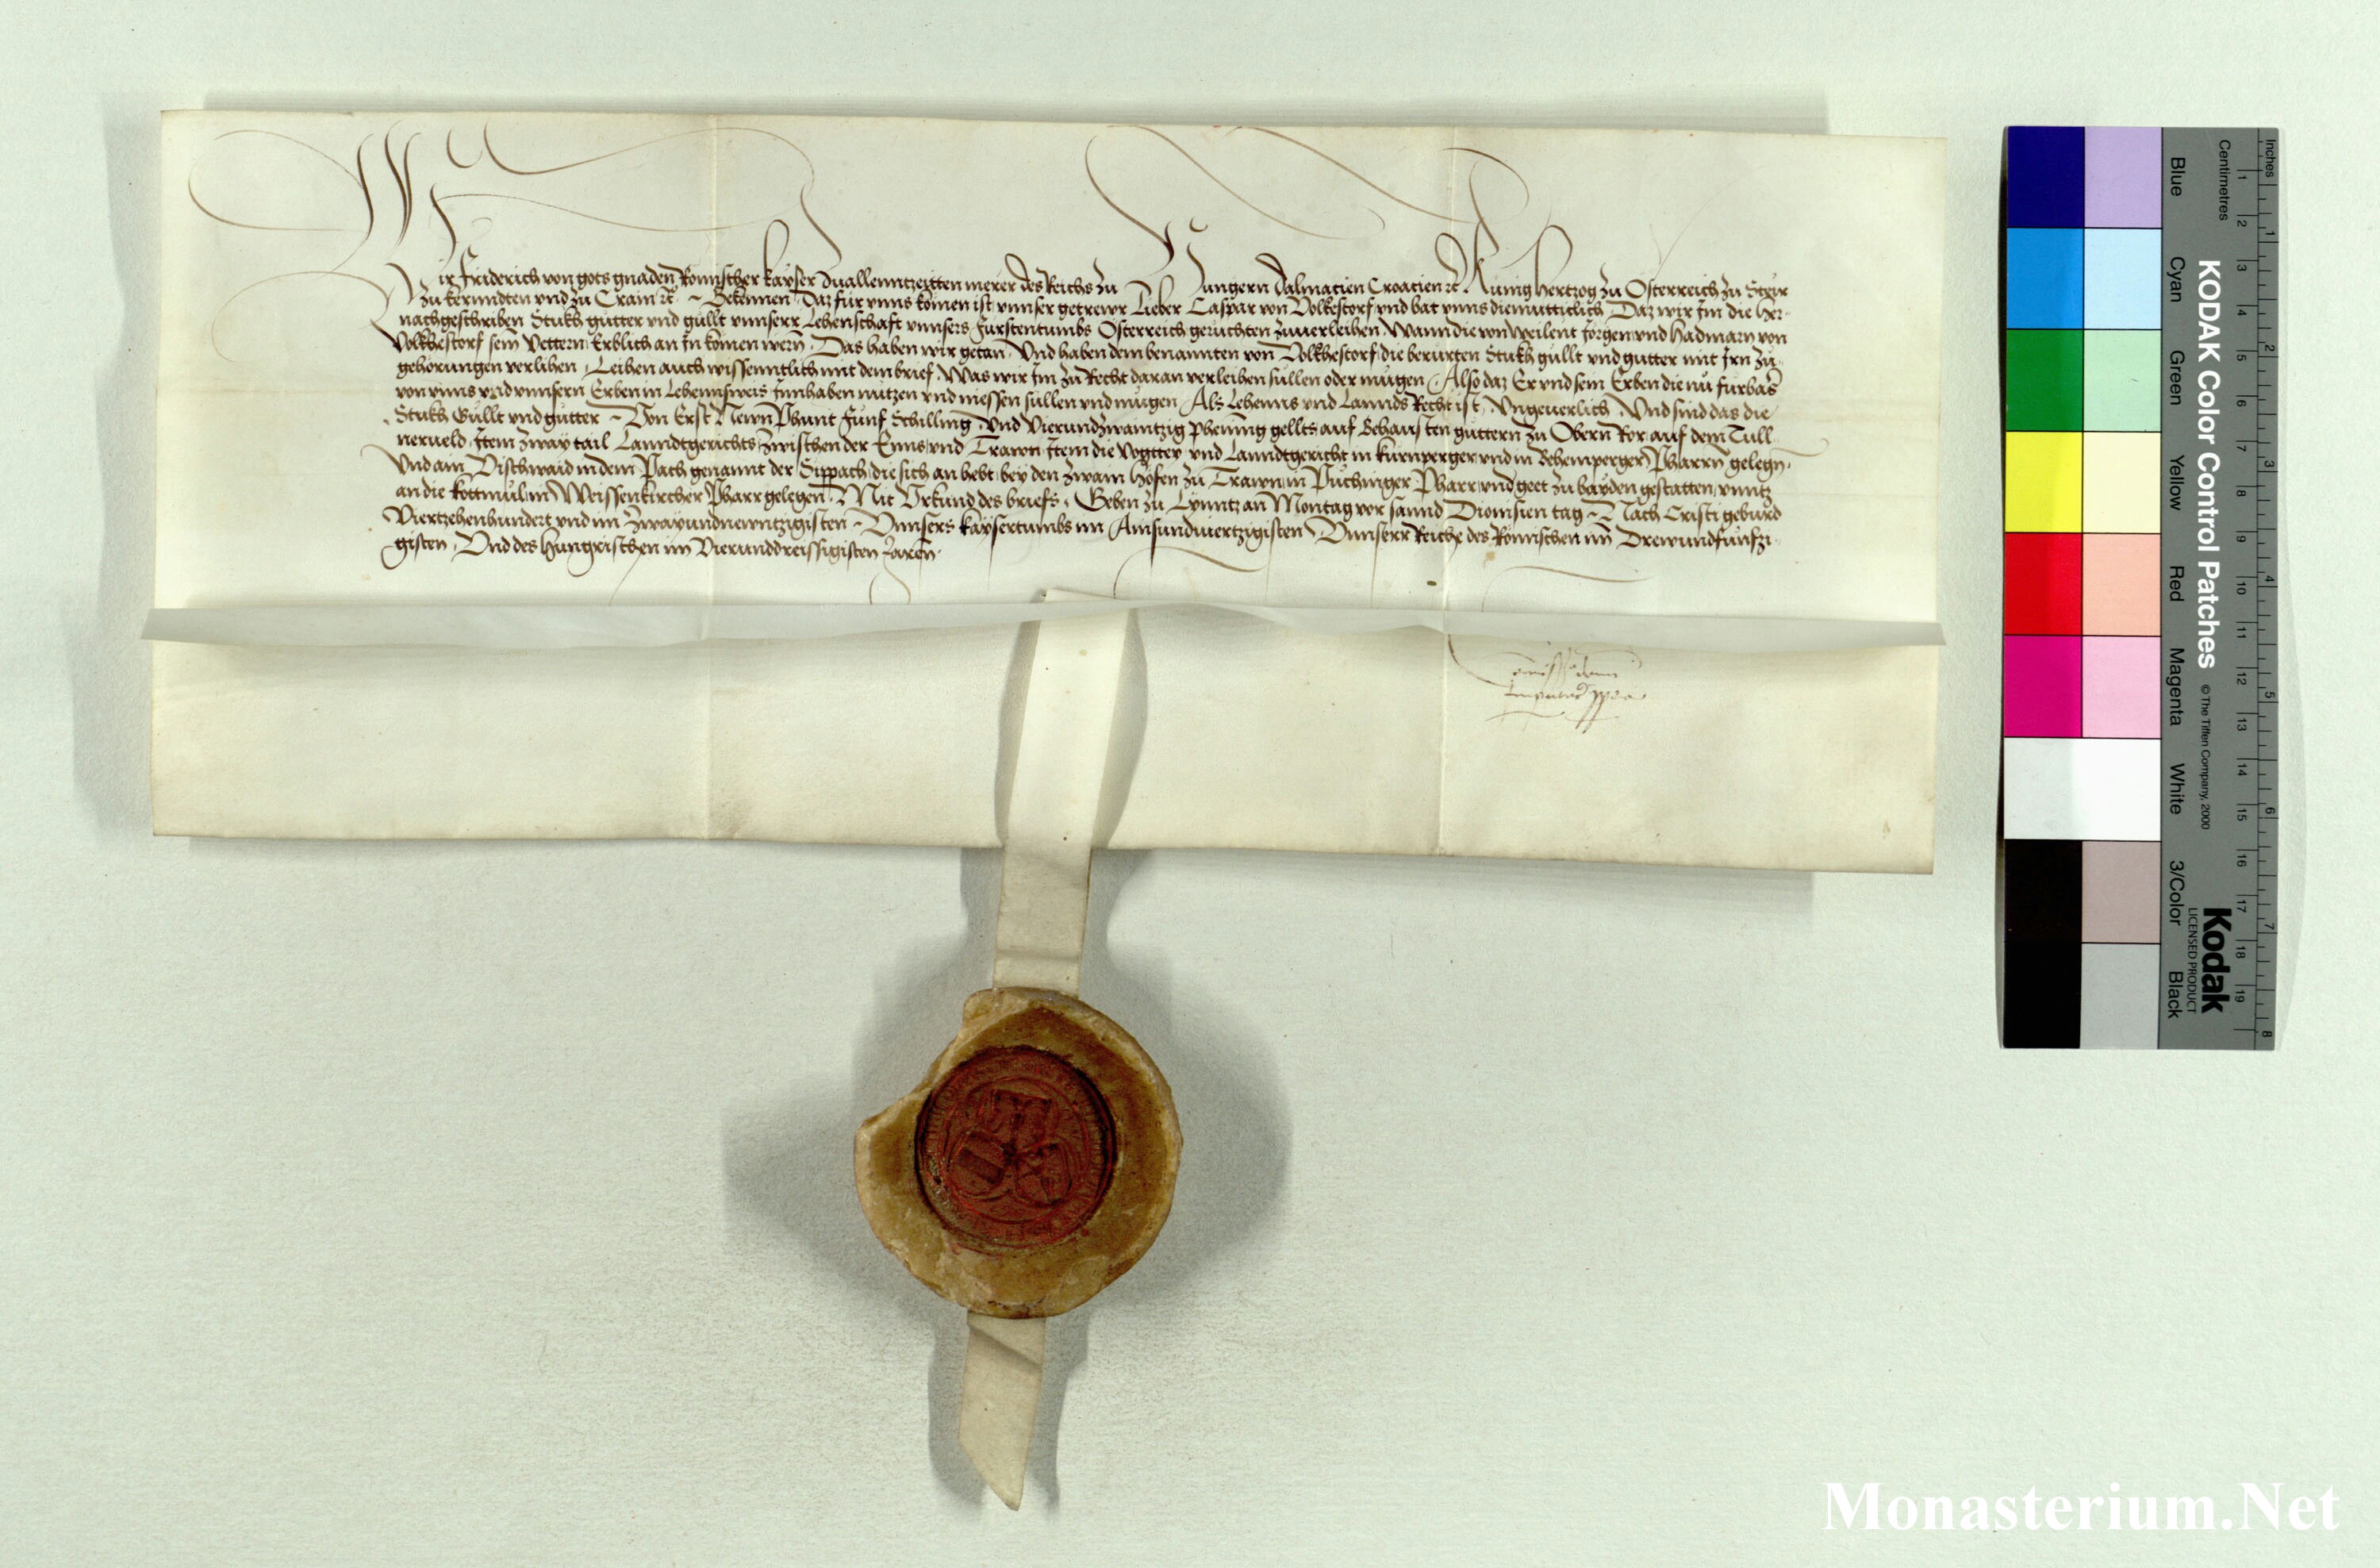 Wir Friderich von gots gnaden Romischer kayser zuallenntzeitten merer des Reichs zu Hungern Dalmatien Croatien ꝛc Kunig Hertzog zu Osterreich zu Steir
zu kernndten vnd zu Crain ꝛc ~ Bekennen Daz fur vnns komen ist vnnser getrewr Lieber Caspar von Volkestorf vnd bat vnns diemutticlich Daz wir Im die her-
nachgeschriben Stukh gutter vnd gullt vnnserr Lehenschaft vnnsers Furstentumbs Osterreich geruchten zuuerleihen Wann die von weilent Jorgen vnd Hadmarn von
Volkhestorf sein Vettern Erblich an In komen wern Das haben wir getan Vnd haben dem benannten von Volkhestorf die berurten Stukh gullt vnd gutter mit Irn zu-
gehorungen verlihen Leihen auch wissenntlich mit dem brief Was wir Im zu Recht daran verleihen sullen oder mugen Also daz Er vnd sein Erben die nu furbas
von vnns vnd vnnsern Erben in Lehennsweis Innhaben nutzen vnd niessen sullen vnd mugen Als Lehenns vnd Lannds Recht ist Vngeuerlich Vnd sind das die
Stukh Gullt vnd gutter ~ Von Erst Newn Phunt Funf Schilling Vnd Vierundzwaintzig phening gellts auf Behausten guttern zu Obern Ror auf dem Tull
nerueld Item zway tail Lanndtgerichts zwischen der Enns vnd Trawn Item die Vogttey vnd Lanndtgericht in kurnperger vnd in Behemperger Pharrn gelegn
Vnd ain Vischwaid in dem Pach genannt der Sippach die sich an hebt bey den zwain Hofen zu Trawn in Puchinger Pharr vnd geet zu bayden gestatten vnntz
an die kottmul in Weissenkircher Pharr gelegen Mit Vrkund des briefs Geben zu Lynntz an Montag vor sannd Dionisien tag ~ Nach Cristi geburd
Viertzehenhundert vnd im Zwayundnewntzigisten ~ Vnnsers kaysertumbs im Ainsundviertzigisten Vnnserr Reiche des Romischen im Drewundfunfzi-
gisten Vnd des Hungrischen im Vierunddreissigisten Jaren
KODAK Color Control Patches © The Tiffen Company, 2000
Kodak
LICENSED PRODUCT
Blue Cyan Green Yellow Red Magenta White 3/Color Black
Centimetres 1 2 3 4 5 6 7 8 9 10 11 12 13 14 15 16 17 18 19
Inches 1 2 3 4 5 6 7 8
Monasterium.Net